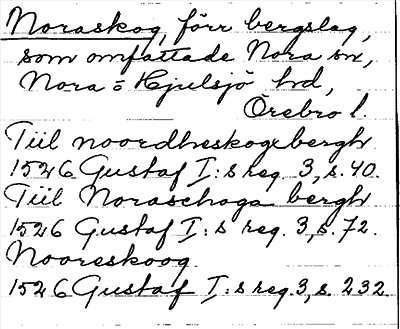 Noraskog, förr bergslag,
som omfattade Nora sn,
Nora = Hjulsjö hd,
Örebro l.
Tiil noordheskoge bergh
1526 Gustaf I:s reg. 3, s. 40.
Tiil Noraschoga bergh
1526 Gustaf I:s reg. 3, s. 72.
Nooreskoog.
1526 Gustaf I:s reg. 3, s. 232.